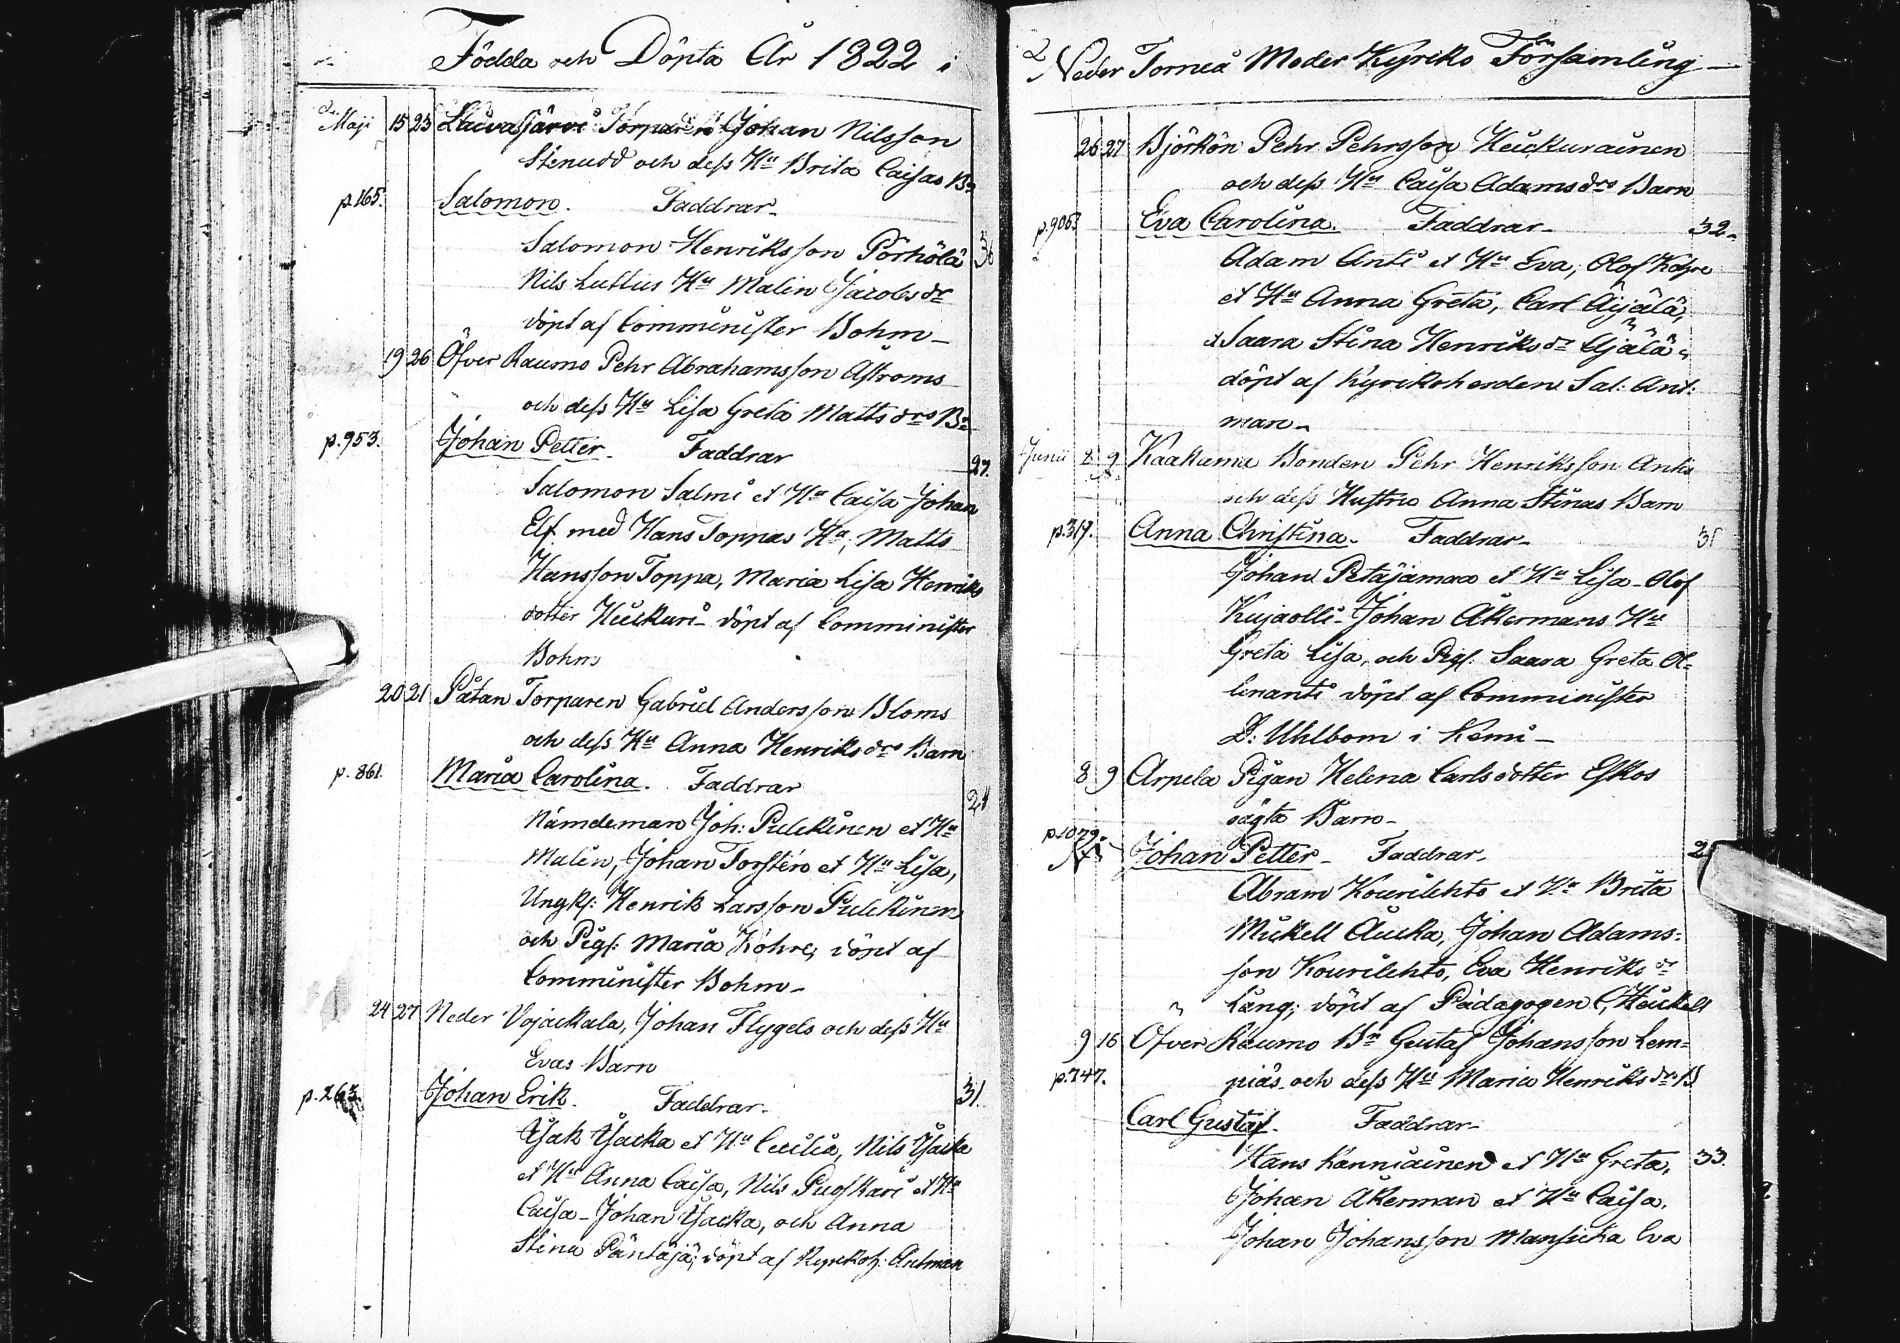 Födda och Döpta År 1822 i
Maji 15 23 Laivajärvi Torparen Johan Nilsson
Stenudd och dess Hu Brita Caisas Bn
p.165. Salomon. Faddrar_
Salomon Henriksson Pörhölä 36
Nils Luttus Hu Malin Jacobsdr
döpt af Comminister Bohm_
19 26 Öfver Raumo Pehr Abrahamsson Aströms
och dess Hu Lisa Greta Mattsdrs Bn
p.953. Johan Petter. Faddrar 27.
Salomon Salmi et Hu Caisa Johan
Elf. med Hans Toppas Hu, Matts
Hansson Toppa, Maria Lisa Henriks
dotter Kuckuri_ döpt af Comminister
Bohm
20 21 Påtan Torparen Gabriel Andersson Bloms
och dess Hu Anna Henriksdrs Barn
p. 861. Maria Carolina. Faddrar 24
Nämdeman Joh: Pulckinen et Hu
Malin, Johan Torsten et Hu Lisa,
Ungk: Henrik Larsson Pulckinen
och Pig: Maria Köhre; döpt af
Comminister Bohm_
24 27 Neder Vojackala, Johan Flygels och dess Hu
Evas Barn
p. 263 Johan Erik. Faddrar_ 31.
Isak Yacka et Hu Cecilia, Nils Yacka
et Hu Anna Caisa, Nils Puoskari et Hu
Caisa_ Johan Yacka, och Anna
Stina Päntäjä; döpt af Kyrkoh: Antman
2 Neder Torneå Moder Kyriko Församling_
26 27 Björkön Pehr Pehrsson Keickurainen
och dess Hu Caisa Adamsdrs Barn
p.906. Eva Carolina. Faddrar_ 32.
Adam Anti et Hu Eva, Olof Köhre
et Hu Anna Greta, Carl Äijälä,
et Saara Stina Henriksdr Äijälä
döpt af Kyrkoherden Sal. Ant:
man_
Junii 8 9 Kaakama Bonden Pehr Henriksson Antis
och dess Hustru Anna Stinas Barn
p.317. Anna Christina. Faddrar_ 31
Johan Petäjämaa et Hu Lisa_ Olof
Kujaolli_ Johan Åkermans Hu
Greta Lisa, och Pig: Saara Greta Ol-
linanti döpt af Comminister
D: Uhlbom i Kemi_
8 9 Arpela Pigan Helena Carlsdotter Eskos
oägta Barn_
p.1079. Johan Petter_ Faddrar_
Abram Kourilehto et Hu Brita
Mickell Aucka, Johan Adams:
son Kourilehto, Eva Henriksdr
Lång; döpt af Pädagogen C. Heickell
9 16 Öfver Raumo Bn Gustaf Johansson Lem=
p.747. piäs och dess Hu Maria Henriksdrs B
Carl Gustaf. Faddrar_
Hans Kanniainen et Hu Greta, 33.
Johan Åkerman et Hu Caisa.
Johan Johansson Mansicka Eva